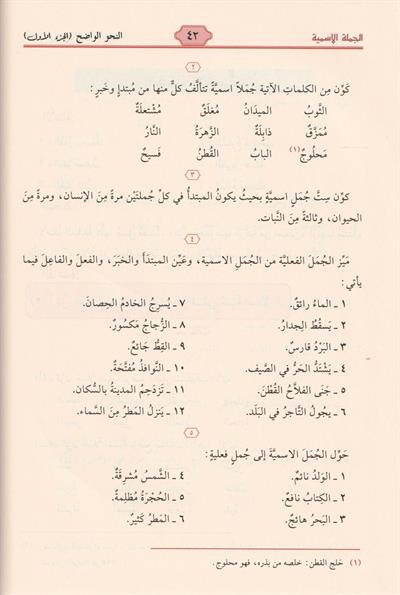 الجملة الاسمية ٤٢ النحو الواضح (الجزء الأول)
٢
كَوِّن مِن الكلماتِ الآتية جُملاً اسميَّةً تتألَّفُ كلٌّ منها من مُبتدإٍ وخَبرٍ:
الثَّوبُ الميدَانُ مُغلَقٌ مُشتعلَةٌ
مُمزَّقٌ ذابِلَةٌ الزَّهرَةُ النَّارُ
مَحلُوجٌ(١) البابُ القُطنُ فَسيحٌ
٣
كوِّن سِتَّ جُملٍ اسميَّةٍ بحيثُ يكونُ المبتدأُ في كلِّ جُملتَيْن مرةً مِنَ الإنسان، ومرةً مِنَ
الحيوان، وثالثةً مِنَ النَّبات.
٤
مَيِّز الجُمَلَ الفعليَّة من الجُملِ الاسمية، وعَيِّن المبتدَأَ والخَبَرَ، والفعلَ والفاعِلَ فيما
يأتي:
١ ـ الماءُ رائقٌ.
٢ ـ يَسقُطُ الجِدارُ.
٣ ـ البَرْدُ قارسٌ.
٤ ـ يَشْتَدُّ الحَرُّ في الصَّيف.
٥ ـ جَنَى الفلاَّحُ القُطْنَ.
٦ ـ يجُولُ التَّاجرُ في البَلَد.
٧ ـ يُسرِجُ الخادمُ الحِصانَ.
٨ ـ الزُّجاجُ مَكسُورٌ.
٩ ـ القِطُّ جَائعٌ.
١٠ ـ النَّوافذُ مُفتَّحَةٌ.
١١ ـ تَزدَحِمُ المدينةُ بالسُّكان.
١٢ ـ يَنزِلُ المَطرُ مِنَ السَّماء.
٥
حَوِّل الجُمَلَ الاسميَّةَ إلى جُملٍ فعليةٍ:
١ ـ الوَلدُ نائمٌ.
٢ ـ الكِتابُ نافعٌ.
٣ ـ البَحرُ هائجٌ.
٤ ـ الشَّمسُ مُشرِقَةٌ.
٥ ـ الحُجْرَةُ مُظلِمةٌ.
٦ ـ المَطرُ كَثيرٌ.
(١) حَلج القطن: خلصه من بذره، فهو محلوج.